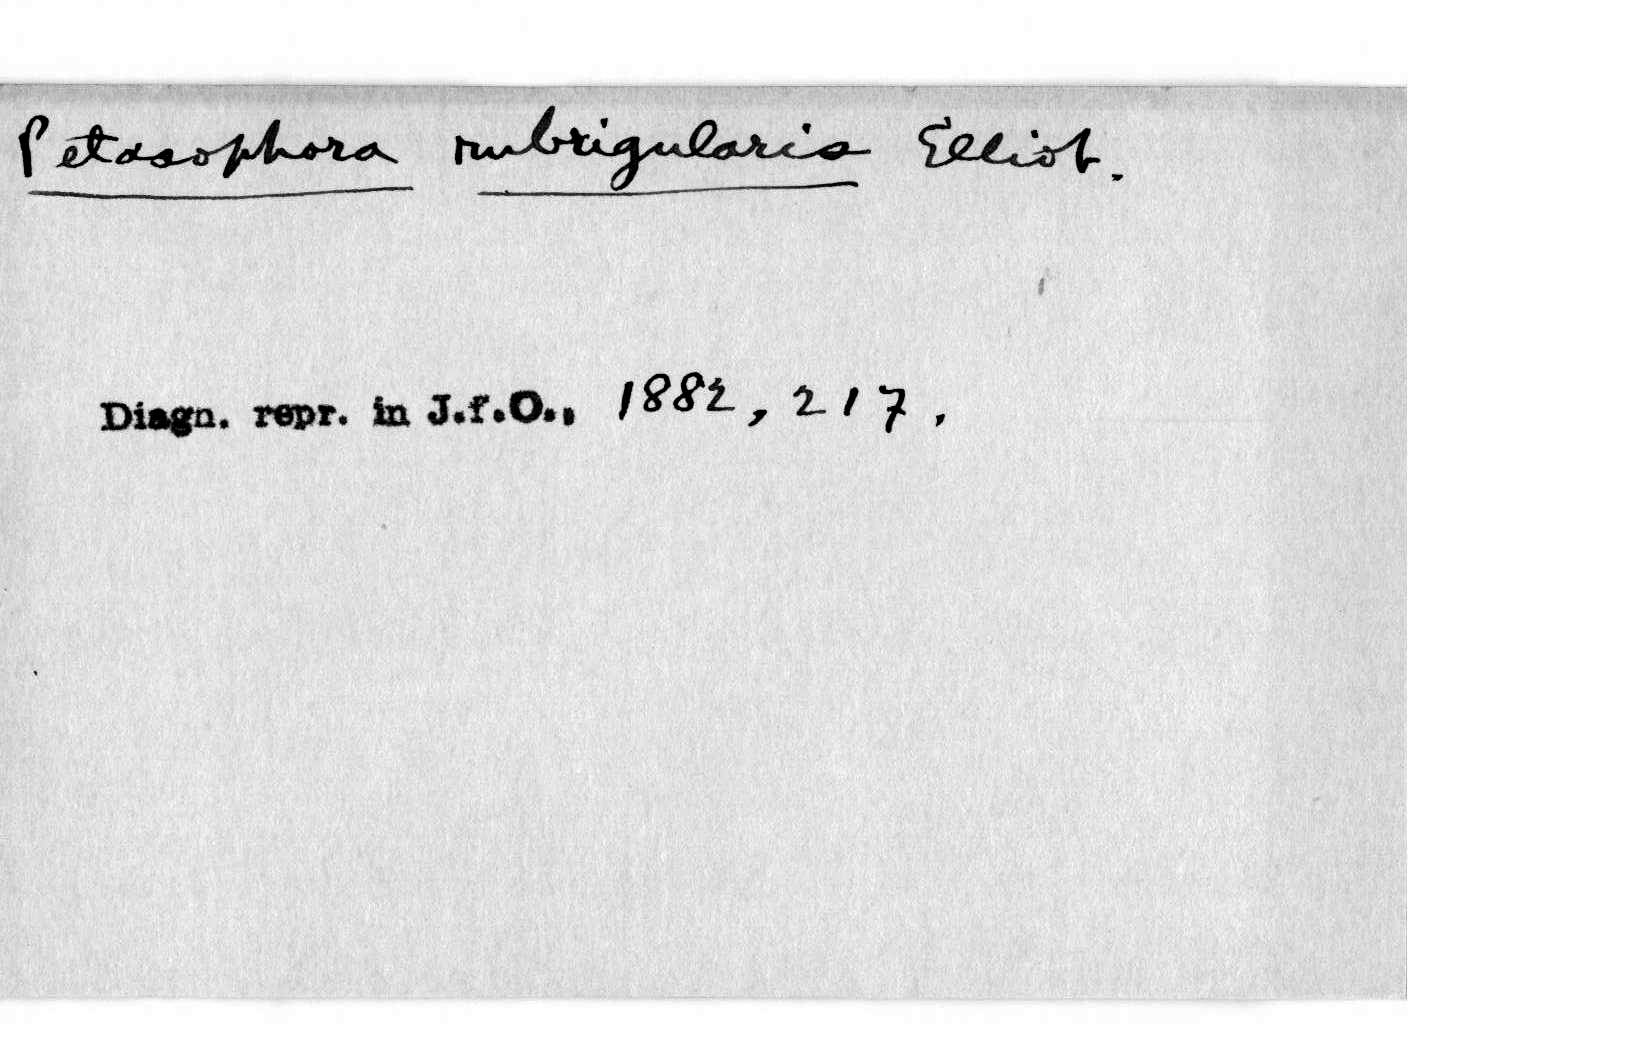 Petasophora rubrigularis Elliot.
Diagn. repr. in J.f.O., 1882, 217.